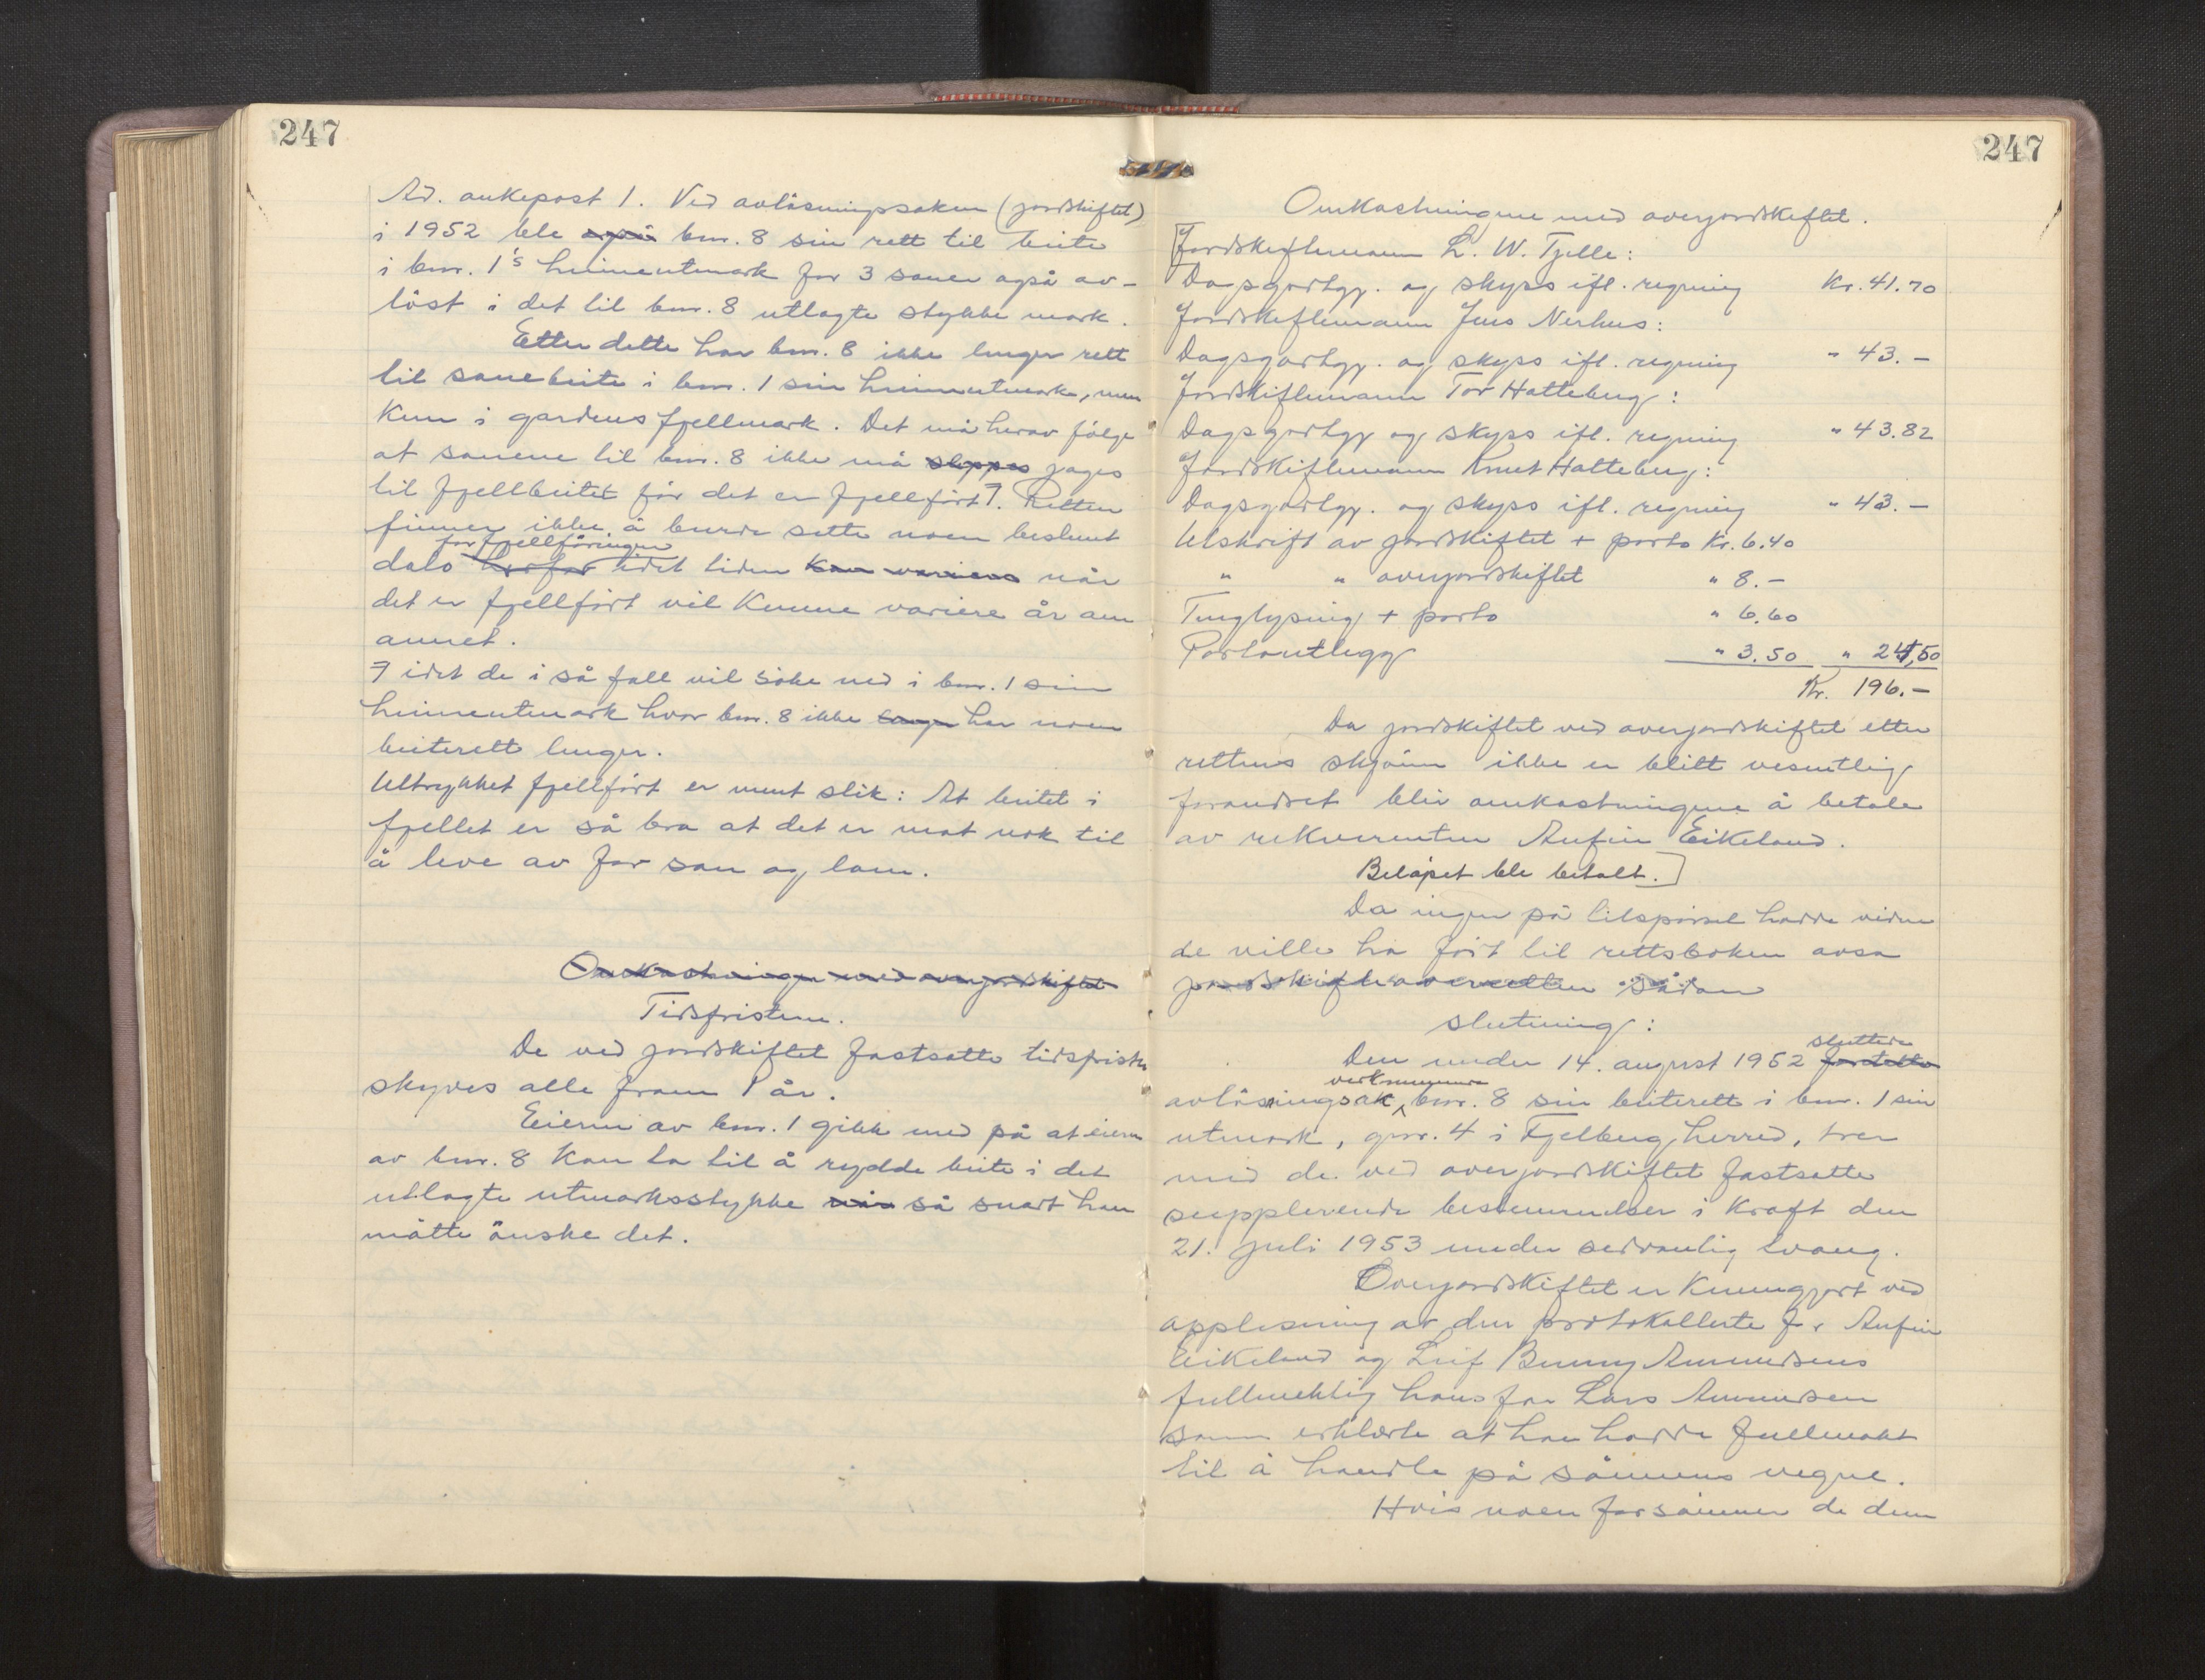 247
Ad. ankepost 1. Ved avløsningssaken (jordskiftet)
i 1952 ble også bnr. 8 sin rett til beite
i bnr. 1's heimeutmark for 3 sauer også av-
løst i det til bnr. 8 utlagte stykke mark.
Etter dette har bnr. 8 ikke lenger rett
til sauebeite i bnr. 1 sin heimeutmark, men
kun i gardens fjellmark. Det må herav følge
at sauene til bnr. 8 ikke må slippes jages
til fjellbeitet før det er fjellført ⁊. Retten
finner ikke å burde sette noen bestemt
for fjellføringen
dato herfor idet tiden kan variere når
det er fjellført vil kunne variere år om
annet.
⁊ idet de i så fall vil søke ned i bnr. 1 sin
heimeutmark hvor bnr. 8 ikke lenger har noen
beiterett lenger.
Uttrykket fjellført er ment slik: At beitet i
fjellet er så bra at det er mat nok til
å leve av for sau og lam.
Omkostninger med overjordskiftet
Tidsfristene.
De ved jordskiftet fastsatte tidsfrister
skyves alle fram 1 år.
Eieren av bnr. 1 gikk med på at eieren
av bnr. 8 kan ta til å rydde beite i det
utlagte utmarksstykke når så snart han
måtte ønske det.
247
Omkostningene med overjordskiftet.
Jordskiftemann L. W. Tjelle:
Dagsgodtgj. og skyss ifl. regning Kr. 41.70
Jordskiftemann Jens Nerhus:
Dagsgodtgj. og skyss ifl. regning " 43.-
Jordskiftemann Tor Hatteberg:
Dagsgodtgj. og skyss ifl. regning " 43.82
Jordskiftemann Knut Hatteberg:
Dagsgodtgj. og skyss ifl. regning " 43.-
Utskrift av jordskiftet + porto Kr. 6.40
" " overjordskiftet " 8.-
Tinglysing + porto " 6.60
Portoutlegg " 3.50 " 24,50
Kr. 196.-
Da jordskiftet ved overjordskiftet etter
rettens skjønn ikke er blitt vesentlig
forandret blir omkostningene å betale
av rekvirenten Anfin Eikeland.
Beløpet ble betalt.]
Da ingen på tilspørsel hadde videre
de ville ha ført til rettsboken avsa
jordskifteoverretten sådan
slutning:
sluttede
Den under 14. august 1952 fortsatte
vedkommende
avløsningssak bnr. 8 sin beiterett i bnr. 1 sin
utmark, gnr. 4 i Fjelberg herred, trer
med de ved overjordskiftet fastsatte
supplerende bestemmelser i kraft den
21. juli 1953 under sedvanlig tvang.
Overjordskiftet er kunngjort ved
opplesning av den protokollerte f. Anfin
Eikeland og Leif Benny Amundsens
fullmektig hans far Lars Amundsen
som erklærte at han hadde fullmakt
til å handle på sønnens vegne.
Hvis noen forsømmer de dem